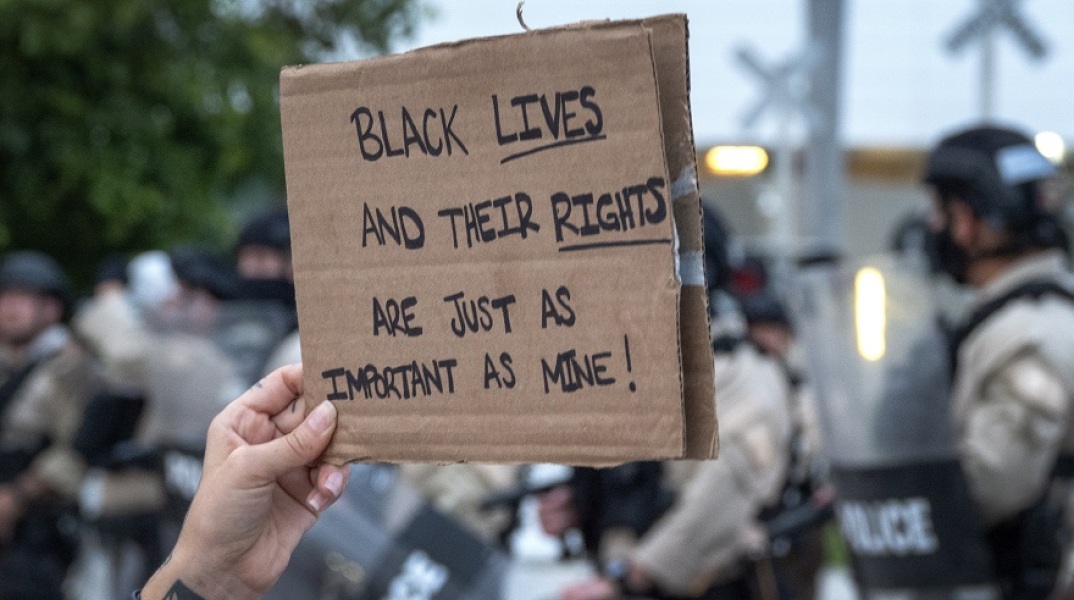 BLACK LIVES
AND THEIR RIGHTS
ARE JUST AS
IMPORTANT AS MINE!